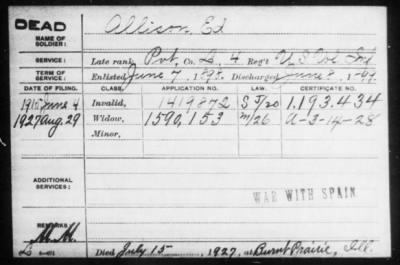 DEAD
NAME OF SOLDIER: Allison, Ed
SERVICE: Late rank, Pvt. Co. L, 4 Reg't U S Vol Inf
TERM OF SERVICE: Enlisted June 7, 1898. Discharged June 8, 1899.
DATE OF FILING. CLASS. APPLICATION NO. LAW. CERTIFICATE NO.
June 4 Invalid, 1419872 1.193.434
1927 Aug. 29 Widow, 1590,153 m/26 A-3-14-28
Minor,
ADDITIONAL SERVICES:
WAR WITH SPAIN
REMARKS:
Died July 15, 1927, at Burnt Prairie, Ill.